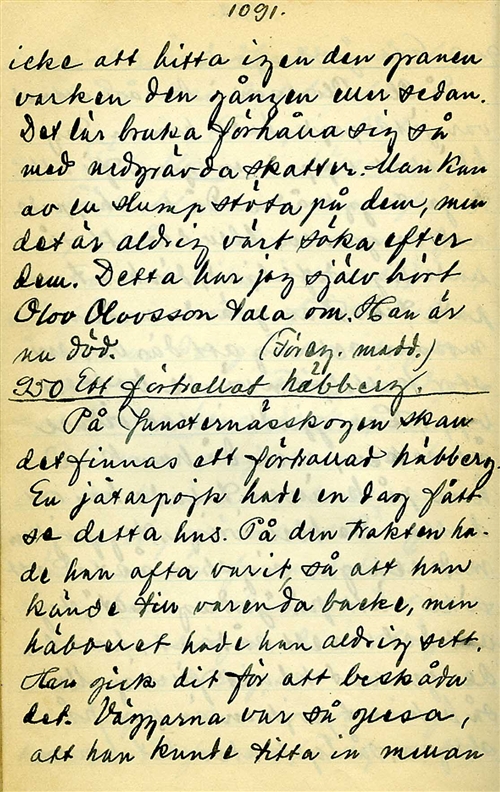 1091.
icke att hitta igen den granen
varken den gången eller sedan.
Det lär bruka förhålla sig så
med nedgrävda skatter. Man kan
av en slump stöta på dem, men
det är aldrig värt söka efter
dem. Detta har jag själv hört
Olov Olovsson tala om. Han är
nu död. (Föreg. medd.)
950 Ett förtrollat häbberg.
På Junsternässkogen skall
det finnas ett förtrollad häbberg.
En jätarpojk hade en dag fått
se detta hus. På den trakten ha-
de han ofta varit, så att han
kände till varenda backe, men
häbberet hade han aldrig sett.
Han gick dit för att beskåda
det. Väggarna var så glesa,
att han kunde titta in mellan